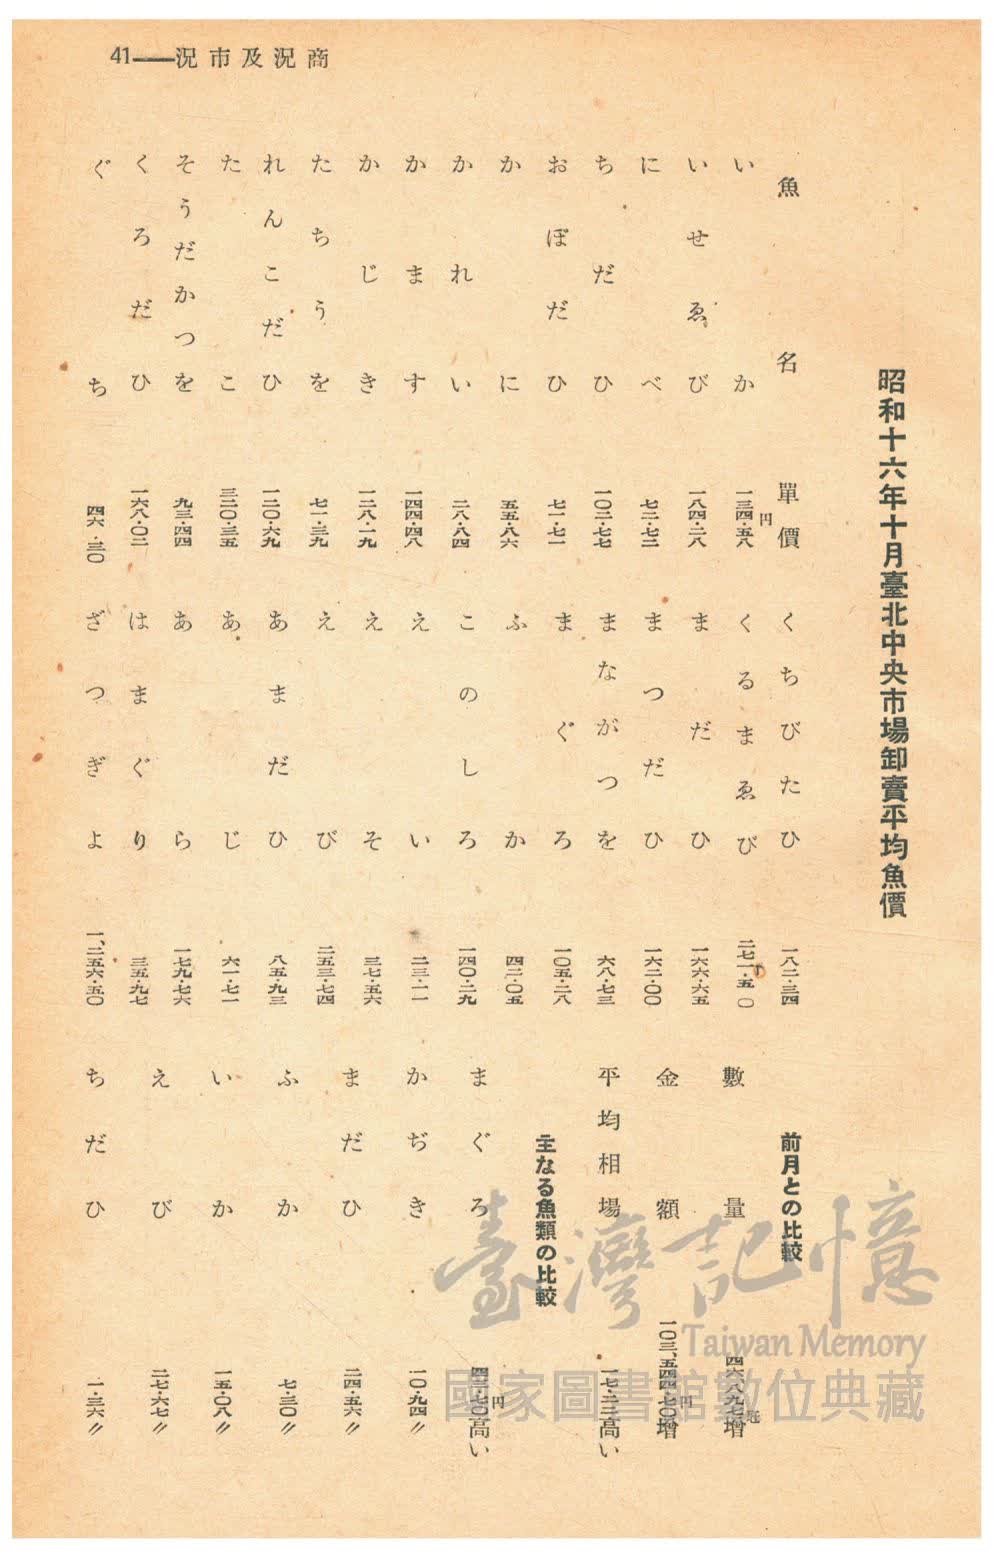 41——況市及況商
昭和十六年十月臺北中央市場卸賣平均魚價
魚名 單價
いか 一三四・五八円
いせゑび 一八四・二八
にべ 七二・七二
ちだひ 一〇二・七七
おぼだひ 七一・七一
かに 五五・八六
かれい 二八・八四
かます 一四四・四八
かじき 一二八・一九
たちうを 七一・三九
れんこだひ 一二〇・六九
たこ 三二〇・三五
そうだかつを 九三・四四
くろだひ 一六八・〇二
ぐち 四六・三〇
くちびたひ 一八二・三四
くるまゑび 二七一・五〇
まだひ 一六六・六五
まつだひ 一六二・〇〇
まながつを 六八・七三
まぐろ 一〇五・二八
ふか 四二・〇五
このしろ 一四〇・二九
えい 二三・一一
えそ 三七・五六
えび 二五三・七四
あまだひ 八五・九三
あじ 六一・七一
あら 一七九・七六
はまぐり 三五・九七
ざつぎよ 一、二五六・五〇
前月との比較
數量 四六・八九七瓩增
金額 一〇三、五四四・七〇円增
平均相場 一七・二三高い
主なる魚類の比較
まぐろ 四三・七〇円高い
かぢき 一〇・九四〃
まだひ 二四・五六〃
ふか 七・三〇〃
いか 一五・〇八〃
えび 二七・六七〃
ちだひ 一・三六〃
臺灣記憶
Taiwan Memory
國家圖書館數位典藏